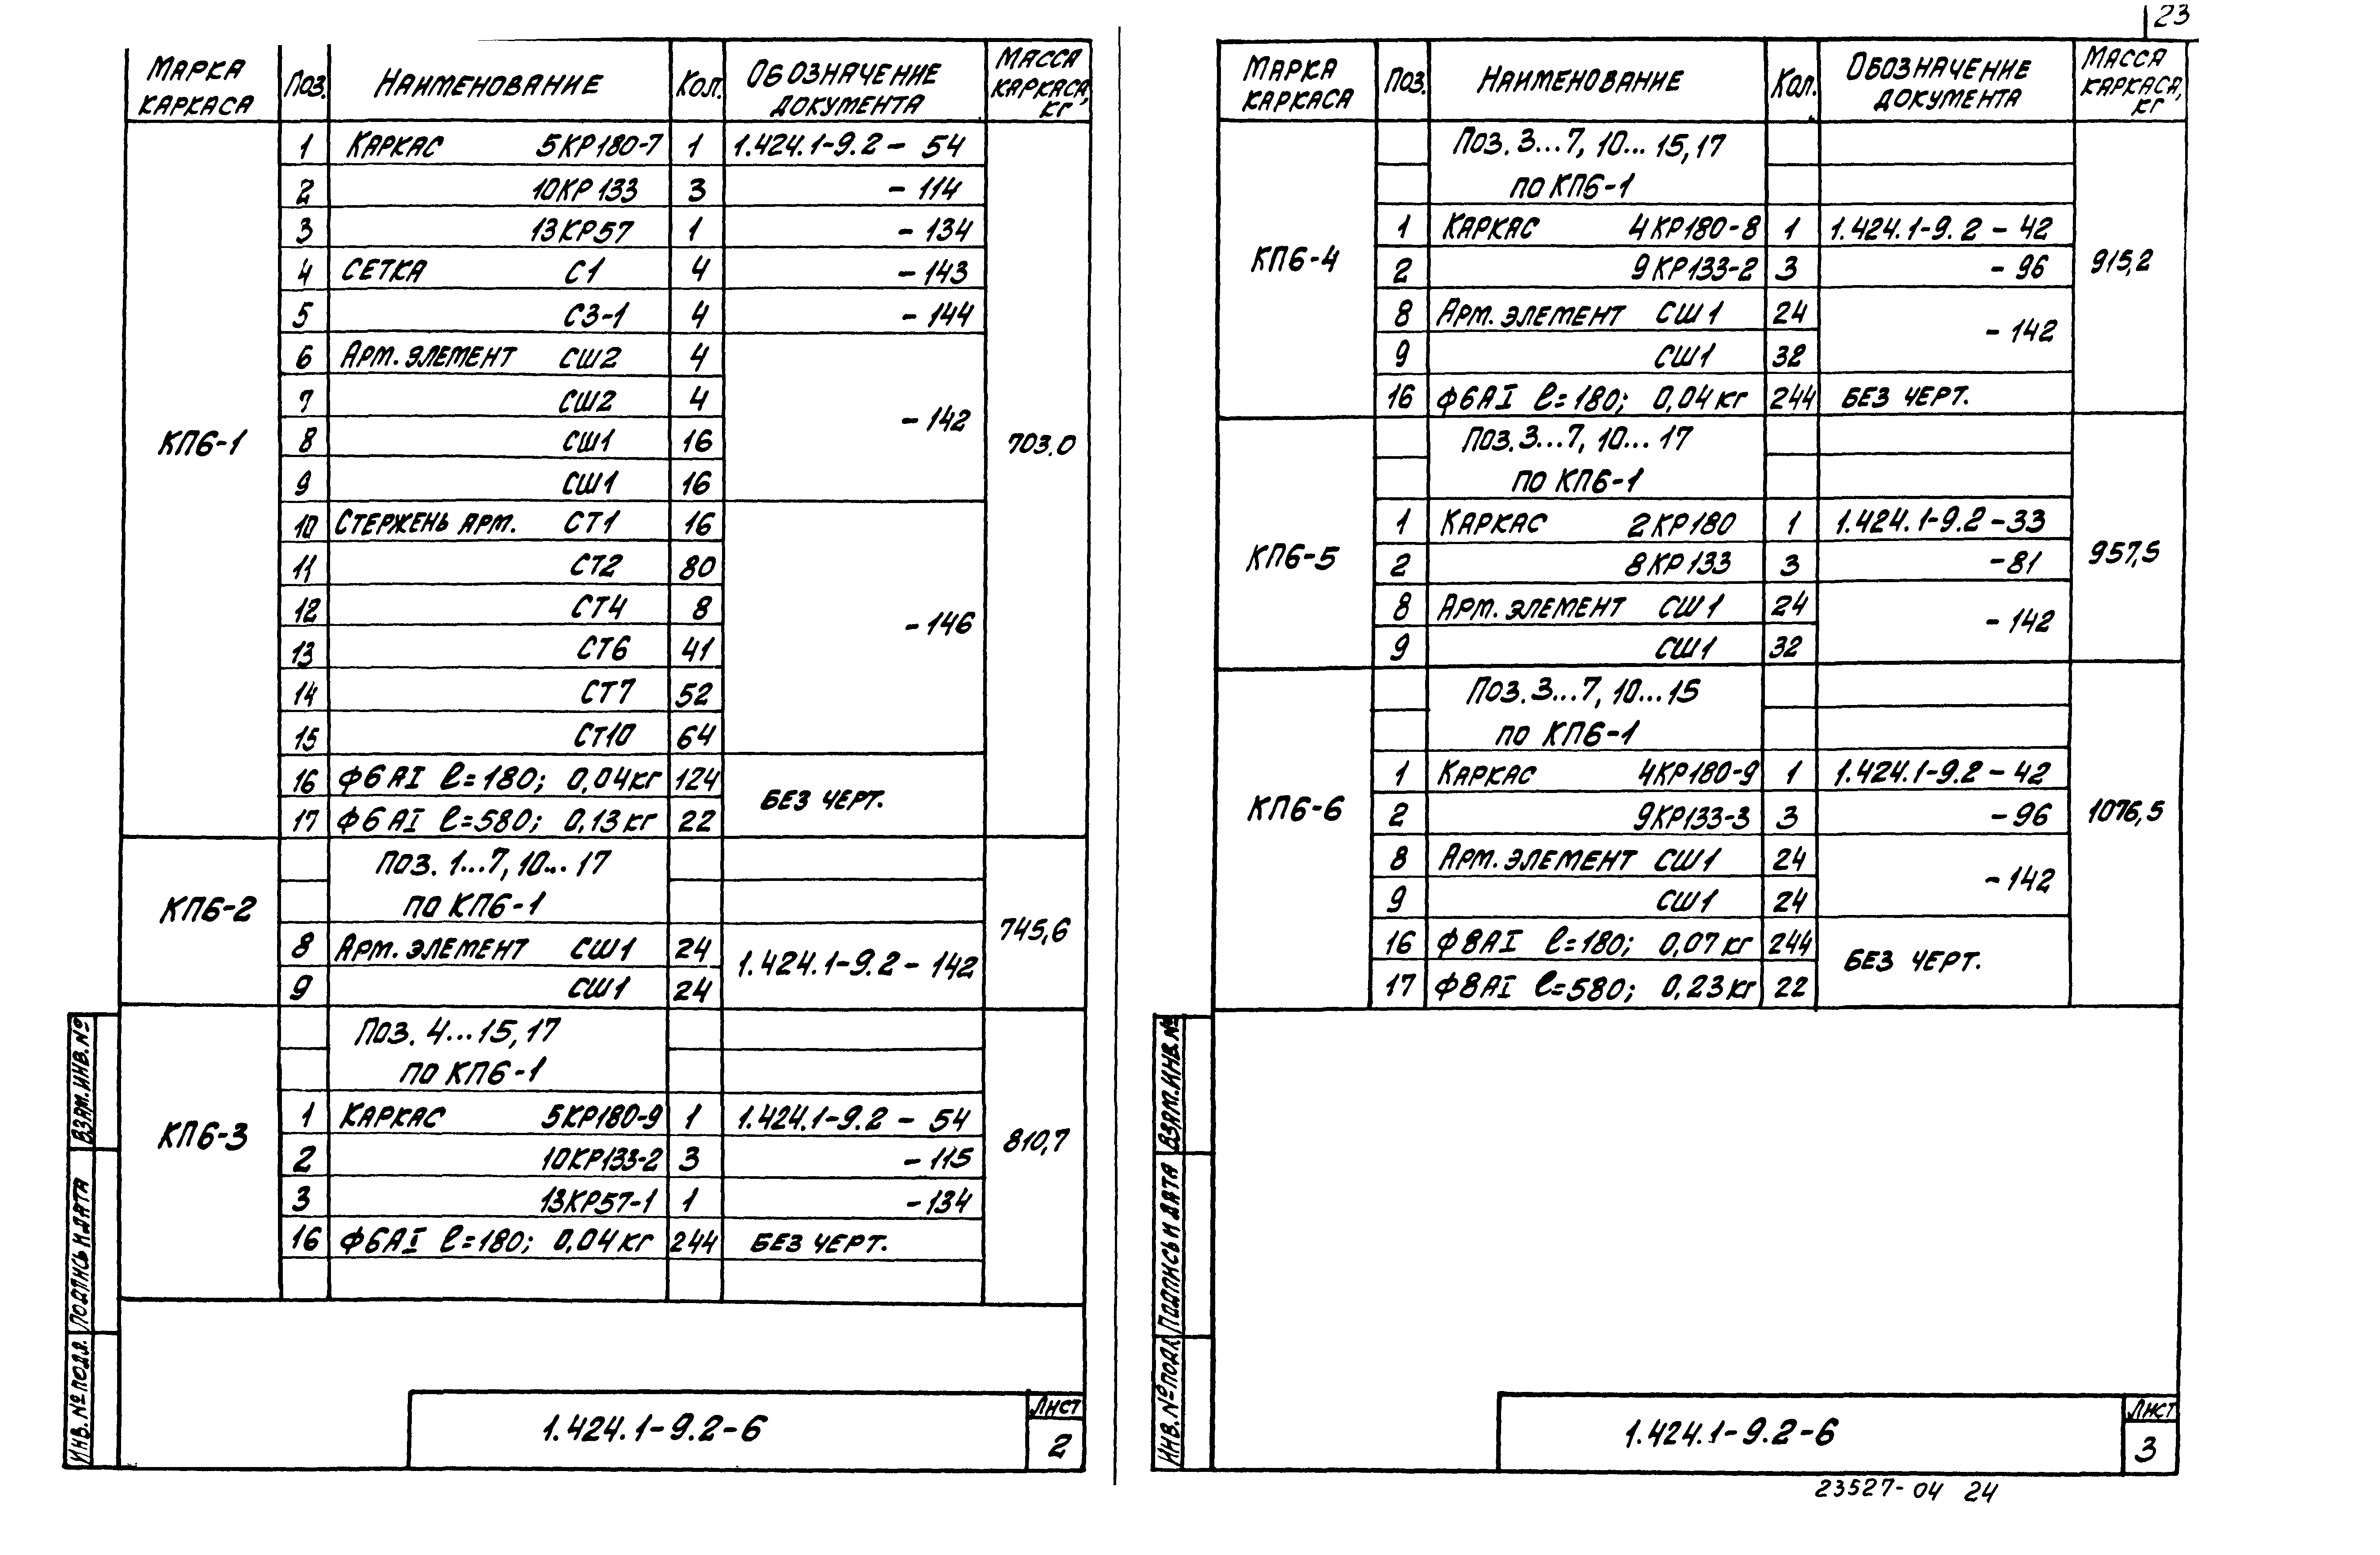 23
МАРКА КАРКАСА ПОЗ. НАИМЕНОВАНИЕ КОЛ. ОБОЗНАЧЕНИЕ ДОКУМЕНТА МАССА КАРКАСА, КГ
КП6-1 703.0
1 КАРКАС 5КР180-7 1 1.424.1-9.2- 54
2 10КР133 3 - 114
3 13КР57 1 - 134
4 СЕТКА С1 4 - 143
5 С3-1 4 - 144
6 АРМ. ЭЛЕМЕНТ СШ2 4
7 СШ2 4 - 142
8 СШ1 16
9 СШ1 16
10 СТЕРЖЕНЬ АРМ. СТ1 16
11 СТ2 80
12 СТ4 8 - 146
13 СТ6 41
14 СТ7 52
15 СТ10 64
16 Ф6АI ℓ=180; 0,04кг 124 БЕЗ ЧЕРТ.
17 Ф6АI ℓ=580; 0,13кг 22
КП6-2 745,6
ПОЗ. 1...7, 10... 17
ПО КП6-1
8 АРМ. ЭЛЕМЕНТ СШ1 24 1.424.1-9.2- 142
9 СШ1 24
КП6-3 810,7
ПОЗ. 4...15, 17
ПО КП6-1
1 КАРКАС 5КР180-9 1 1.424.1-9.2 - 54
2 10КР133-2 3 - 115
3 13КР57-1 1 - 134
16 Ф6АI ℓ=180; 0,04кг 244 БЕЗ ЧЕРТ.
ВЗАМ.ИНВ.№
ПОДПИСЬ И ДАТА
ИНВ.№ ПОДЛ.
1.424.1-9.2-6
ЛИСТ
2
МАРКА КАРКАСА ПОЗ. НАИМЕНОВАНИЕ КОЛ. ОБОЗНАЧЕНИЕ ДОКУМЕНТА МАССА КАРКАСА, КГ
КП6-4 915,2
ПОЗ. 3...7, 10... 15,17
ПО КП6-1
1 КАРКАС 4КР180-8 1 1.424.1-9.2 - 42
2 9КР133-2 3 - 96
8 АРМ. ЭЛЕМЕНТ СШ1 24 - 142
9 СШ1 32
16 Ф6АI ℓ=180; 0,04кг 244 БЕЗ ЧЕРТ.
КП6-5 957,5
ПОЗ. 3...7, 10... 17
ПО КП6-1
1 КАРКАС 2КР180 1 1.424.1-9.2-33
2 8КР133 3 -81
8 АРМ. ЭЛЕМЕНТ СШ1 24 - 142
9 СШ1 32
КП6-6 1076,5
ПОЗ. 3...7, 10...15
ПО КП6-1
1 КАРКАС 4КР180-9 1 1.424.1-9.2 - 42
2 9КР133-3 3 - 96
8 АРМ. ЭЛЕМЕНТ СШ1 24 - 142
9 СШ1 24
16 Ф8АI ℓ=180; 0,07кг 244 БЕЗ ЧЕРТ.
17 Ф8АI ℓ=580; 0,23кг 22
ВЗАМ.ИНВ.№
ПОДПИСЬ И ДАТА
ИНВ.№ ПОДЛ
1.424.1-9.2-6
ЛИСТ
3
23527-04 24